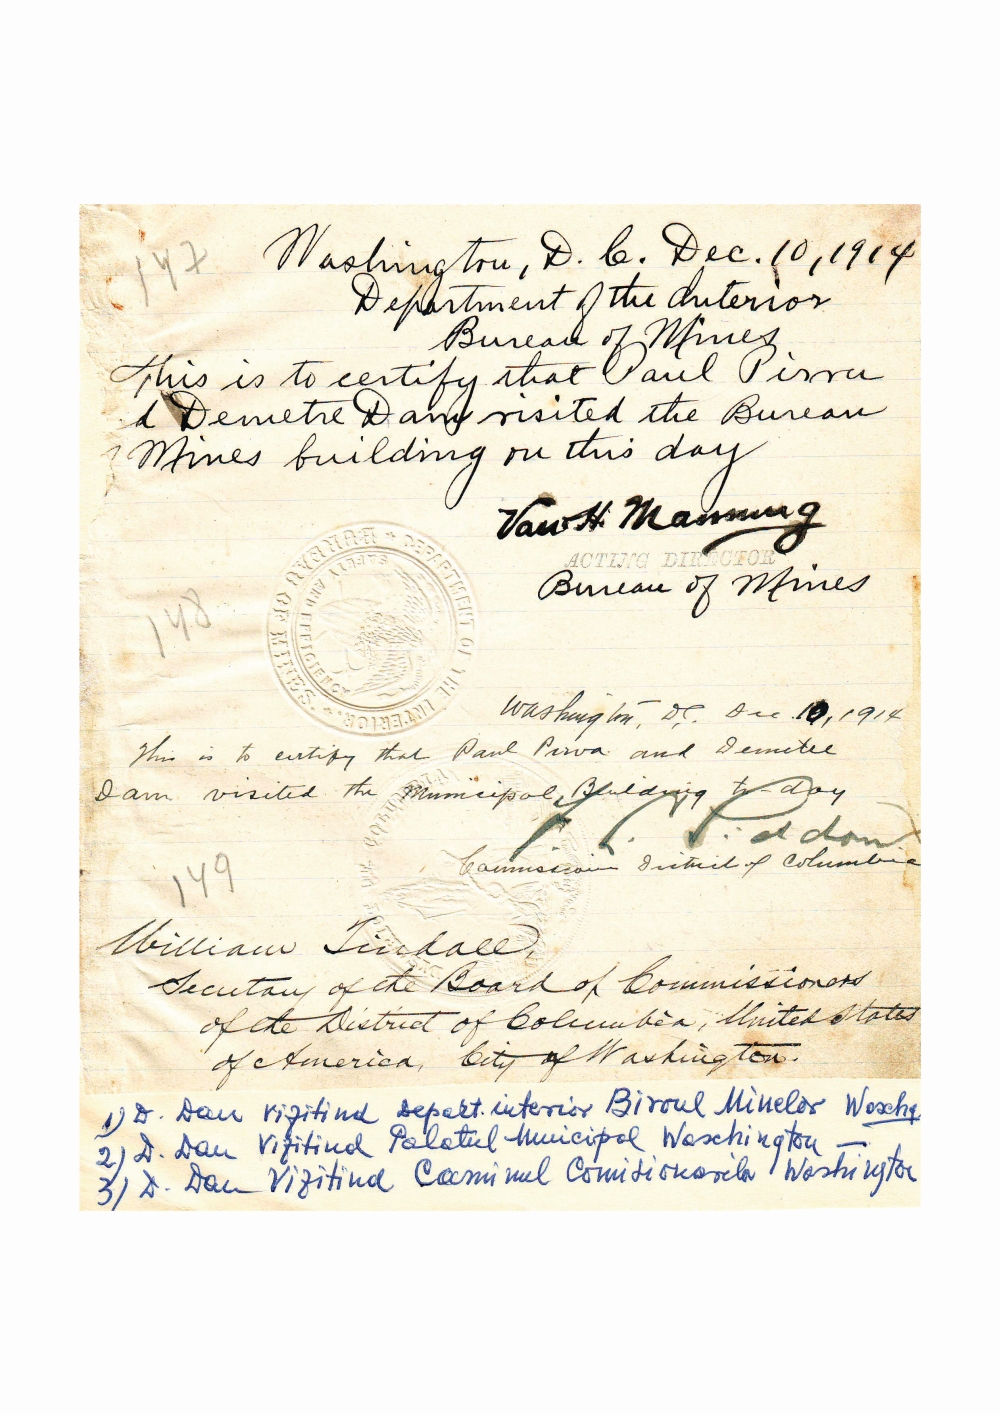 147
Washington, D. C. Dec. 10, 1914
Department of the Interior
Bureau of Mines
This is to certify that Paul Pirvu
d Demetre Dam visited the Bureau
Mines building on this day
Van H. Manning
ACTING DIRECTOR
Bureau of Mines
BUREAU OF MINES * DEPARTMENT OF THE INTERIOR *
SAFETY AND EFFICIENCY
148
Washington, D.C. Dec 10, 1914
This is to certify that Paul Pirva and Demetre
Dam visited the Municipal Building to-day
Siddons
Commissioner District of Columbia
149
William Tindall,
Secretary of the Board of Commissioners
of the District of Columbia, United States
of America, City of Washington.
1) D. Dan vizitind Depart. interior Biroul Minelor Waschg
2) D. Dan Vizitind Palatul Municipal Waschington —
3) D. Dan Vizitind Caminul Comisionarilor Washington